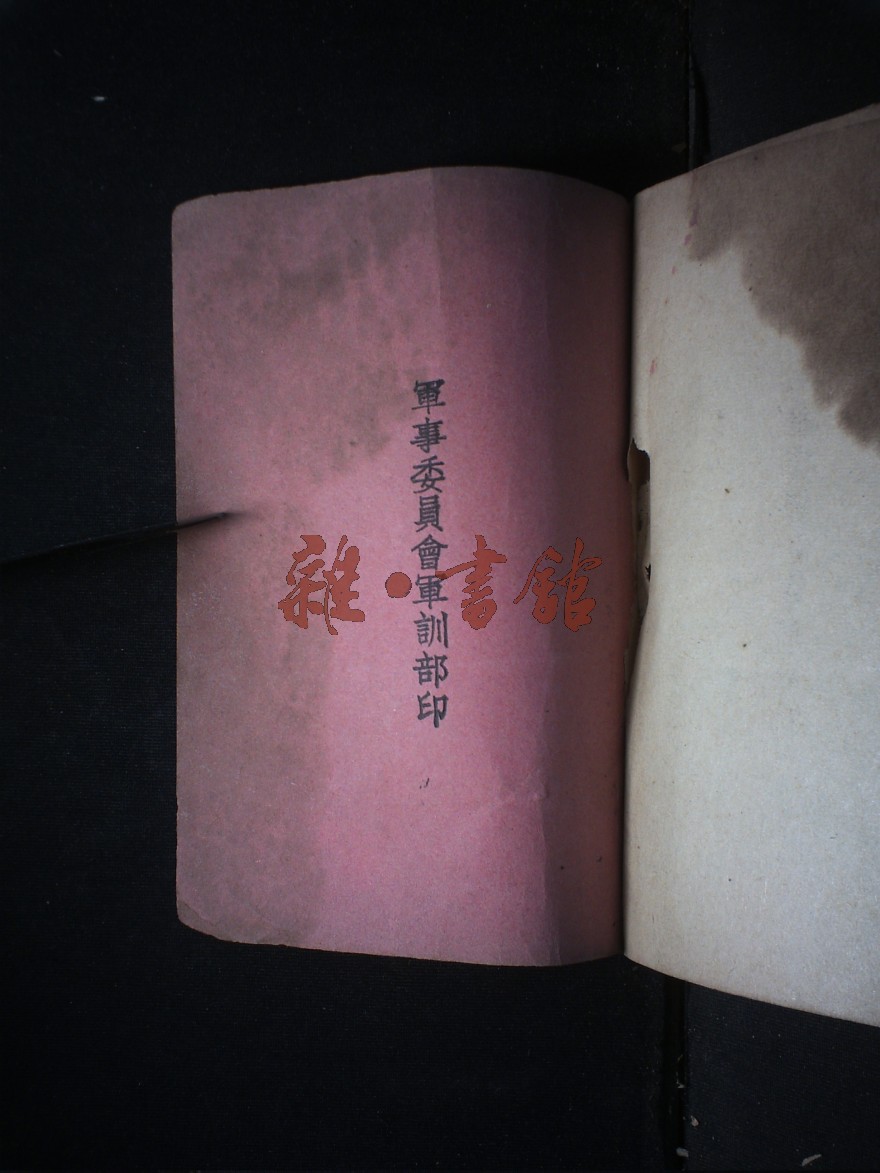 軍事委員會軍訓部印
雜·書館